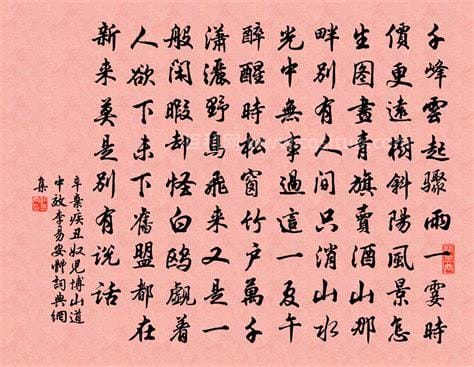 千峰雲起驟雨一霎時
價更遠樹斜陽風景怎
生圖畫青旗賣酒山那
畔別有人間只消山水
光中無事過這一夏午
醉醒時松窗竹户萬千
瀟灑野鳥飛来又是一
般閑暇却怪白鷗觑着
人欲下未下舊盟都在
新来莫是別有說話
辛棄疾丑奴兒博山道
中效李易安體詞典網
集